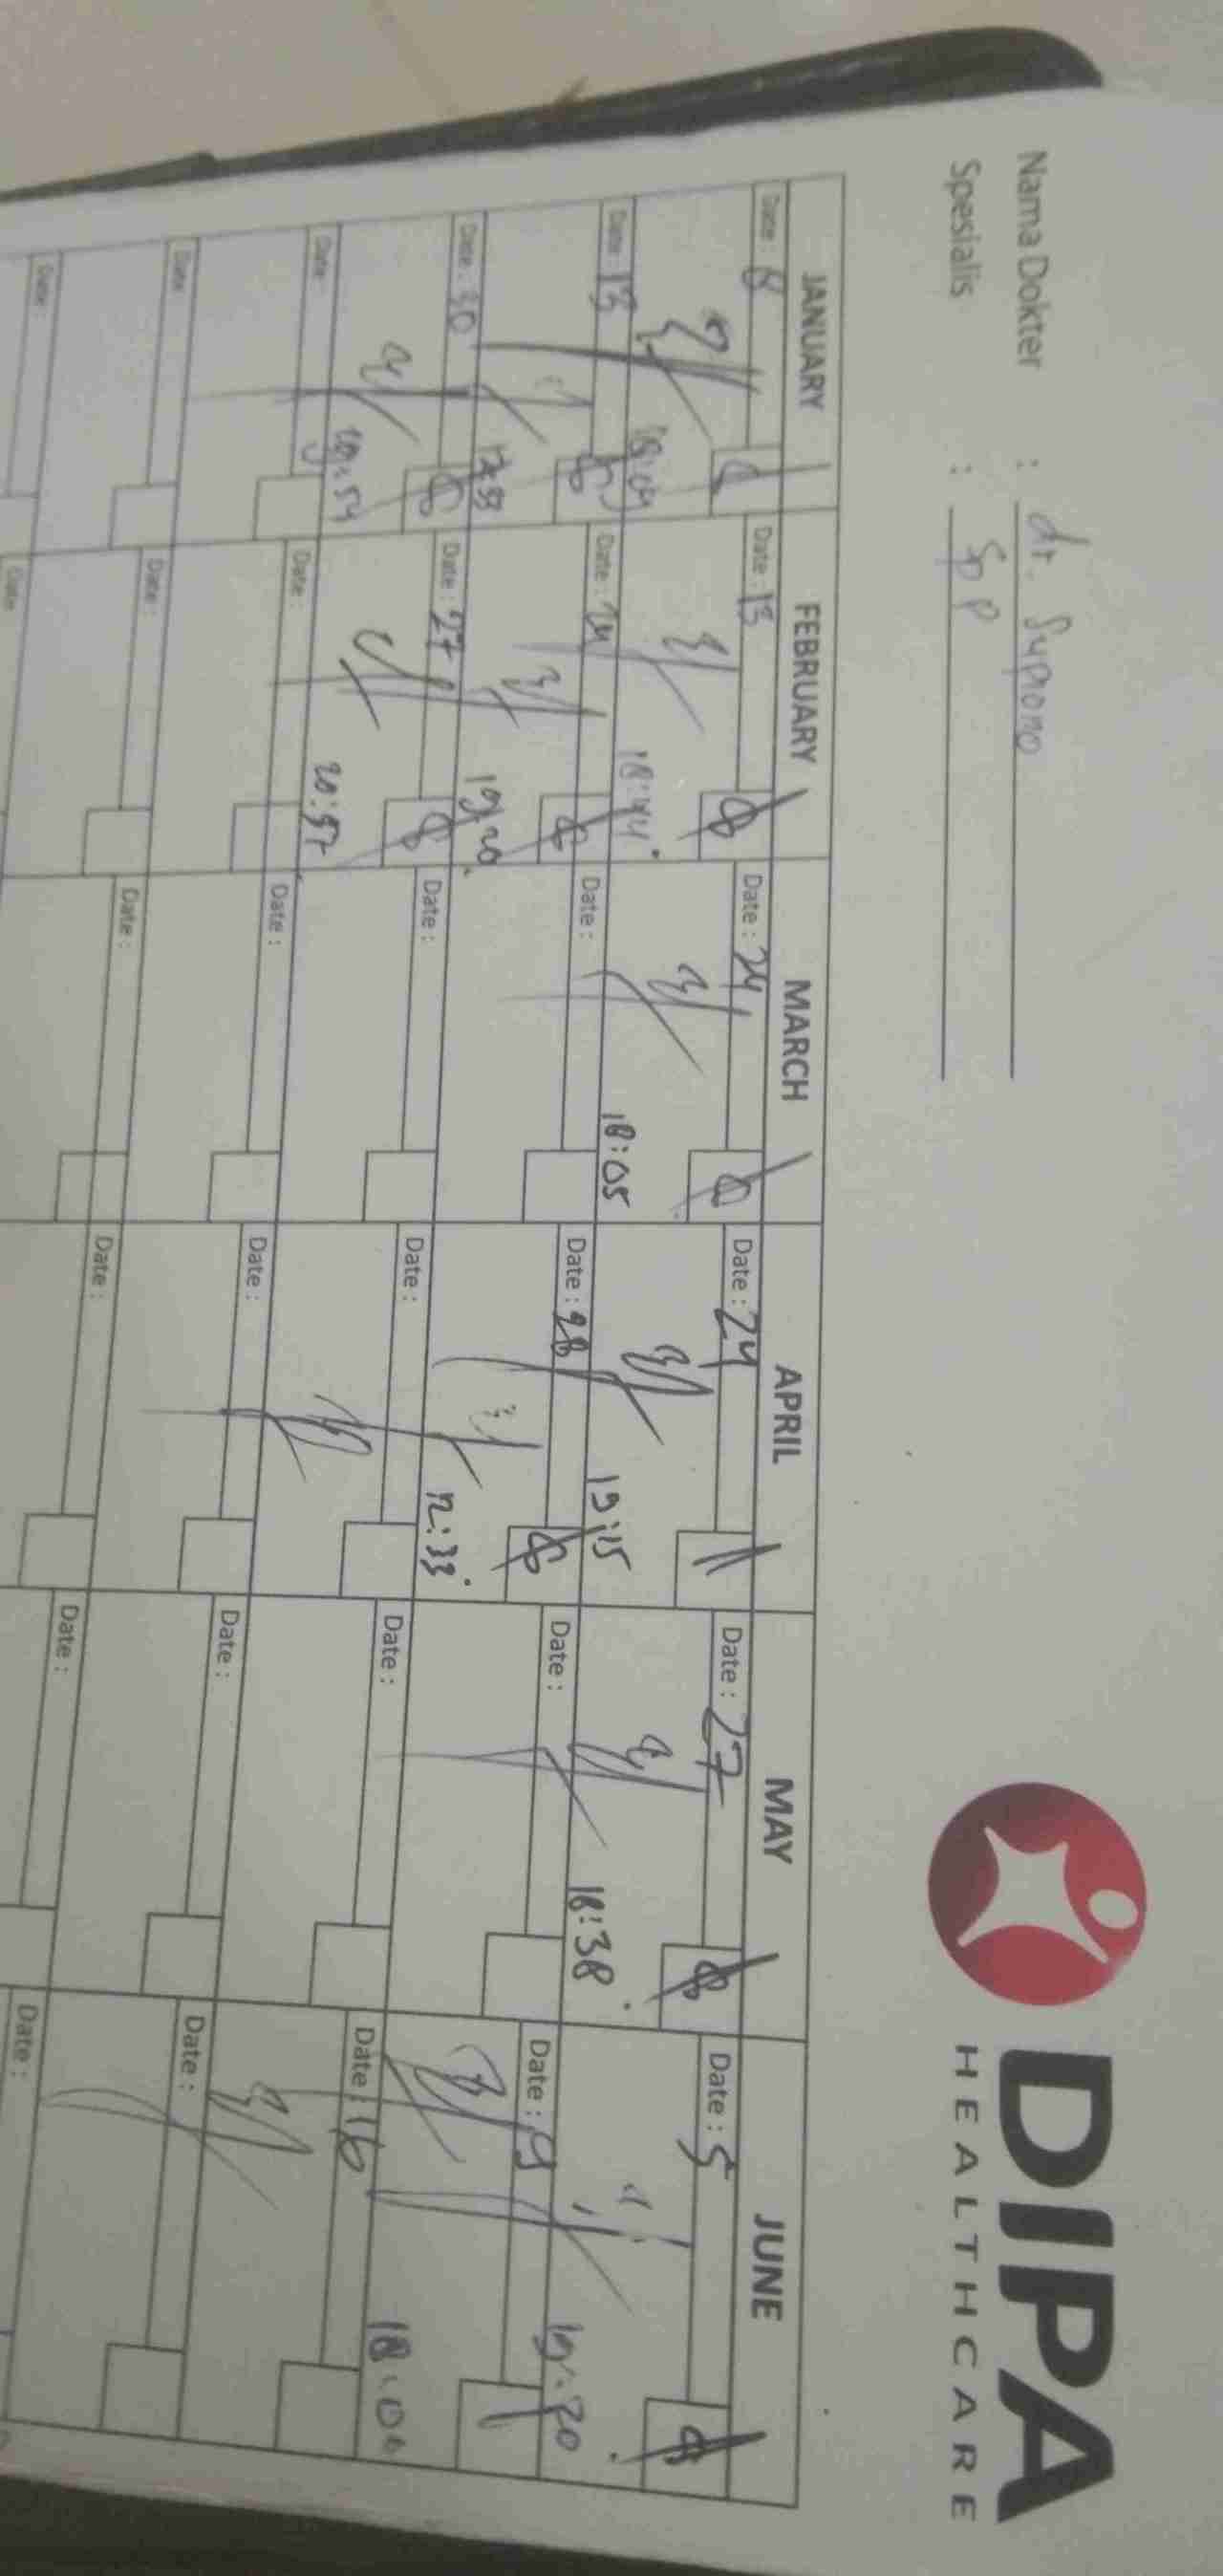 DIPA
HEALTHCARE
Nama Dokter : dr. Supriono
Spesialis : Sp P
JANUARY FEBRUARY MARCH APRIL MAY JUNE
Date : 8 Date : 13 Date : 24 Date : 24 Date : 27 Date : 5
18:04 18:44 18:05 19:15 18:38 19:20
Date : 13 Date : 24 Date : Date : 28 Date : Date : 9
19:20 12:33 18:00
Date : 30 Date : 27 Date : Date : Date : Date : 16
20:37
Date : Date : Date : Date : Date : Date :
Date : Date : Date : Date : Date : Date :
Date : Date